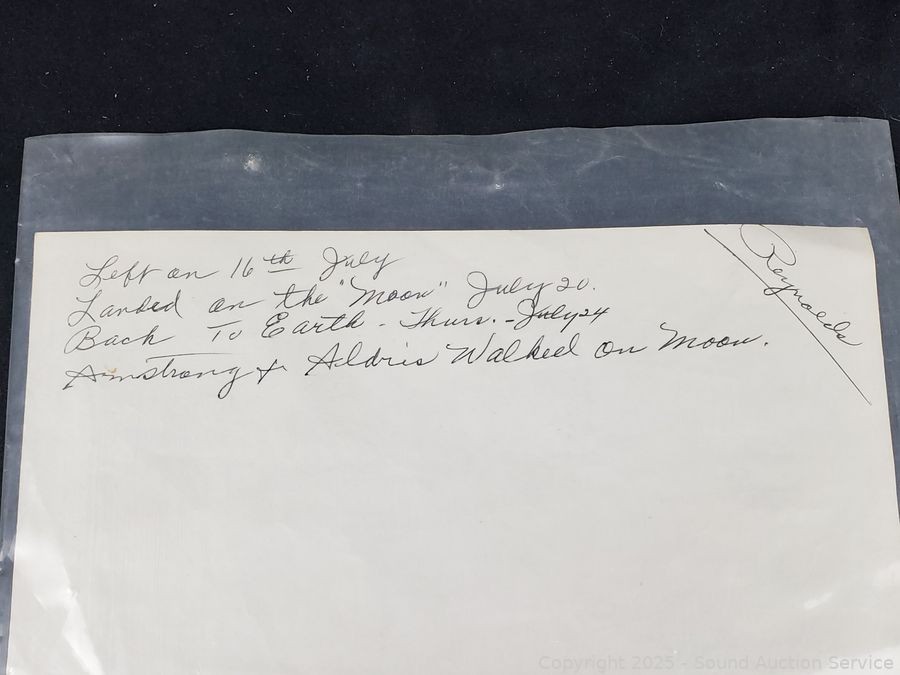 Left on 16th July
Landed on the "Moon" July 20.
Back To Earth - Thurs. - July 24
Armstrong + Aldris Walked on Moon.
Reynolds
Copyright 2025 - Sound Auction Service